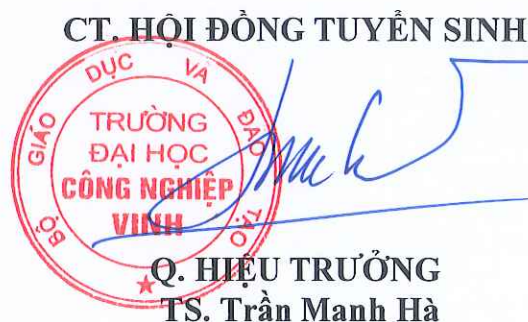 CT. HỘI ĐỒNG TUYỂN SINH
BỘ GIÁO DỤC VÀ ĐÀO TẠO
TRƯỜNG
ĐẠI HỌC
CÔNG NGHIỆP
VINH
Q. HIỆU TRƯỞNG
TS. Trần Mạnh Hà